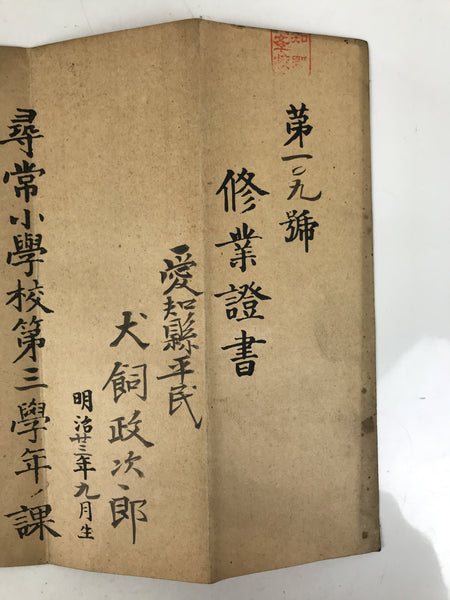 第一〇九號
修業證書
愛知縣平民
犬飼政次郎
明治廿三年九月生
尋常小學校第三學年ノ課